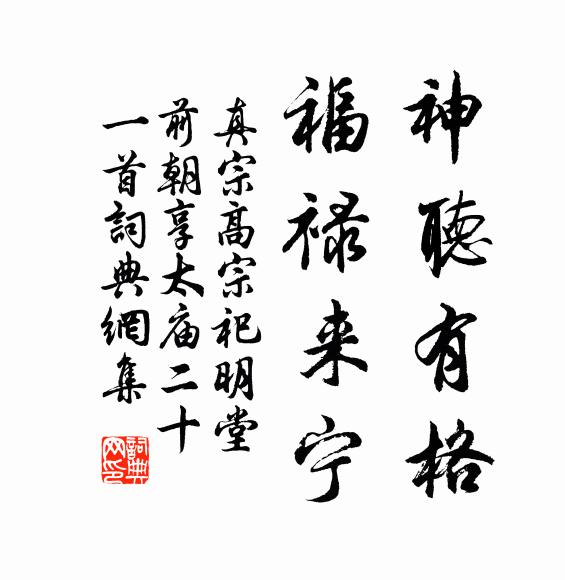 神聽有格
福禄来宁
真宗高宗祀明堂
前朝享太庙二十
一首詞典網集
詞典
网印